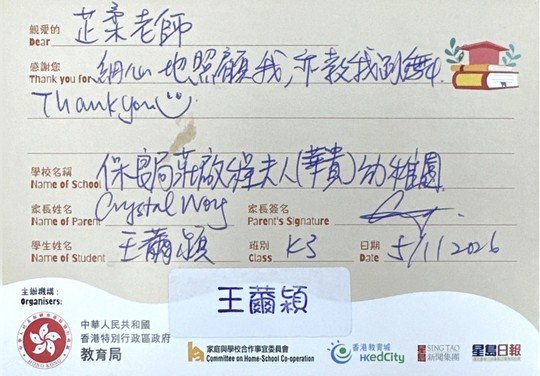 親愛的 芷柔老師
Dear
感謝您 細心地照顧我,亦教我跳舞。
Thank you for
Thank you
學校名稱 保良局莊啟程夫人(華貴)幼稚園
Name of School
家長姓名 Crystal Wong 家長簽名
Name of Parent Parent's Signature
學生姓名 王薾穎 班別 K3 日期 5/11 2026
Name of Student Class Date
王薾穎
主辦機構:
Organisers:
中華人民共和國
香港特別行政區政府
教育局
家庭與學校合作事宜委員會
Committee on Home-School Co-operation
香港教育城
HKedCity
星島 SING TAO
新聞集團
星島日報